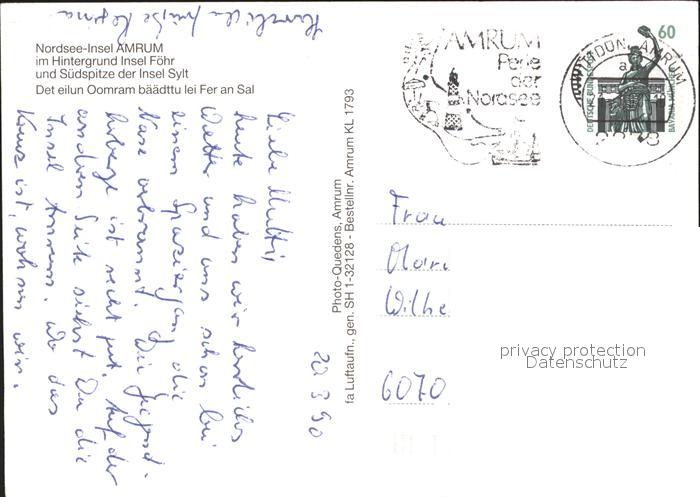 Nordsee-Insel AMRUM
im Hintergrund Insel Föhr
und Südspitze der Insel Sylt
Det eilun Oomram bäädttu lei Fer an Sal
AMRUM
Perle
der
Nordsee
60
DEUTSCHE BUNDESPOST
AMRUM
20 3 90
Liebe Mutti,
heute haben wir herrliches
Wetter und uns schon bei
einem Spaziergang die
Nase verbrannt. Die Jugend-
herberge ist recht gut. Auf der
anderen Seite siehst Du die
Insel Amrum. Wo das
Kreuz ist, wohnen wir.
Herzliche Grüße Regina
Photo-Quedens, Amrum
fa Luftaufn., gen. SH 1-32128 - Bestellnr. Amrum KL 1793
Frau
Wilhe
6070
privacy protection
Datenschutz